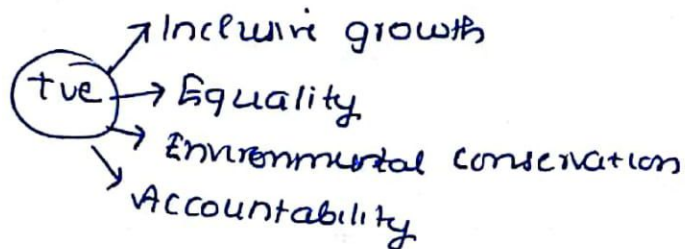 Inclusive growth
+ve
Equality
Environmental conservation
Accountability